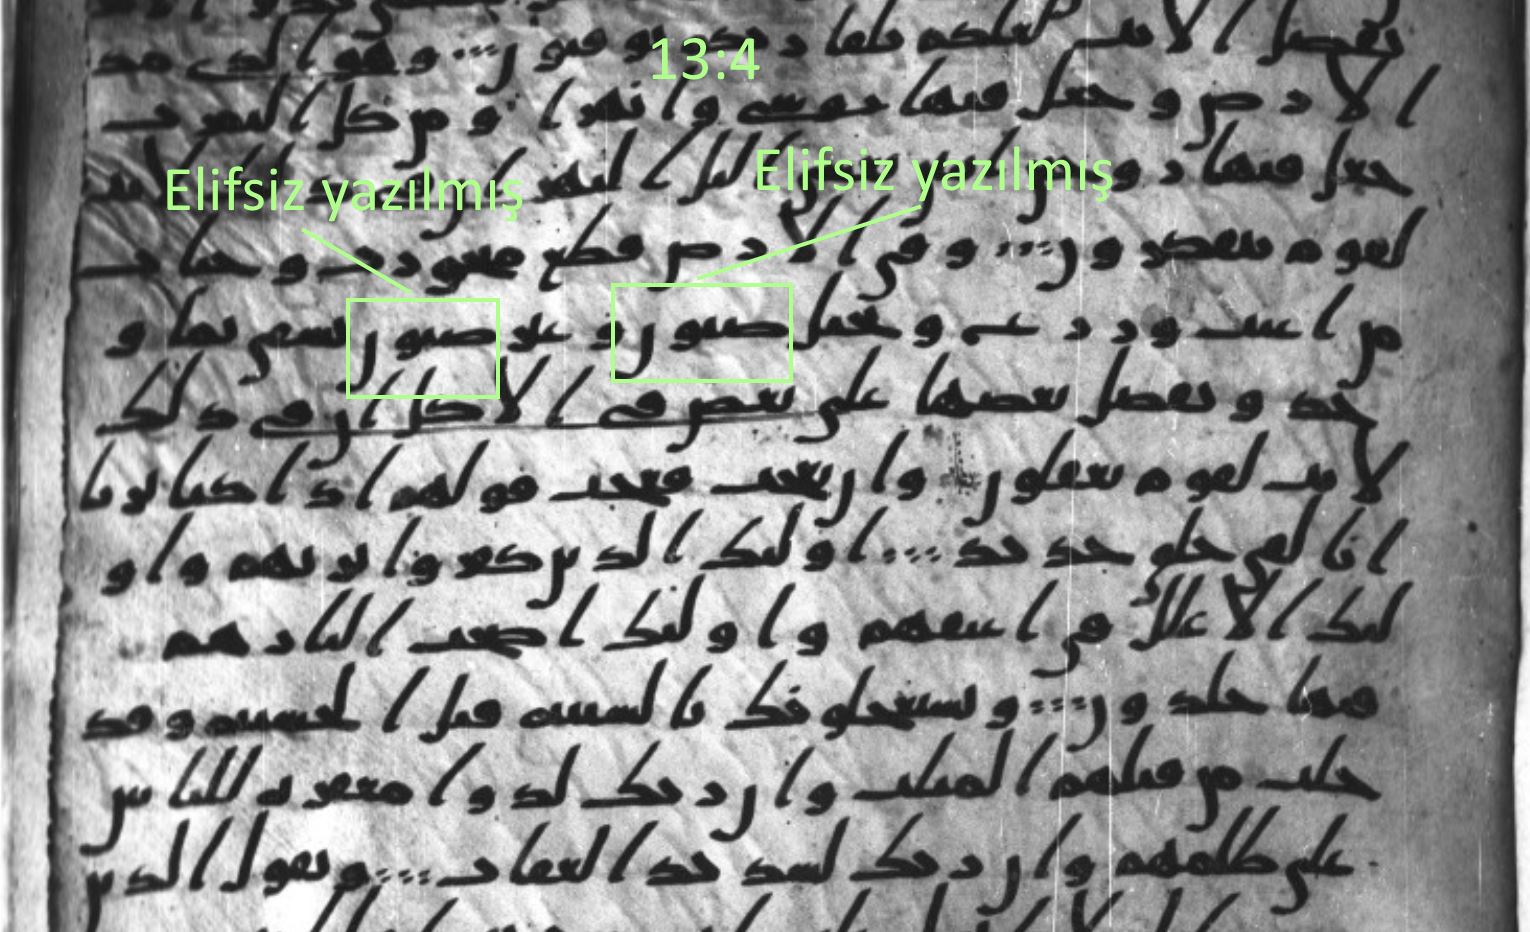 يفصل الايت لعلكم بلقا ربكم توقنون وهو الذي مد
13:4
الارض وجعل فيها روسي وانهرا ومن كل الثمرت
جعل فيها زو
Elifsiz yazılmış
Elifsiz yazılmış
لقوم يتفكرون وفي الارض قطع متجورت وجنات
من اعنب وزرع ونخيل صنون وغير صنون يسقي بما و
حد ونفضل بعضها علي بعض في الاكل ان في ذلك
لايت لقوم يعقلون وان تعجب فعجب قولهم اذا كنا تربا
انا لفي خلق جديد اوليك الذين كفروا بربهم واو
ليك الاغلل في اعنقهم واوليك اصحب النار هم
فيها خلدون ويستعجلونك بالسيه قبل الحسنه وقد
خلت من قبلهم المثلت وان ربك لذوا مغفره للناس
علي ظلمهم وان ربك لشديد العقاب ويقول الذين